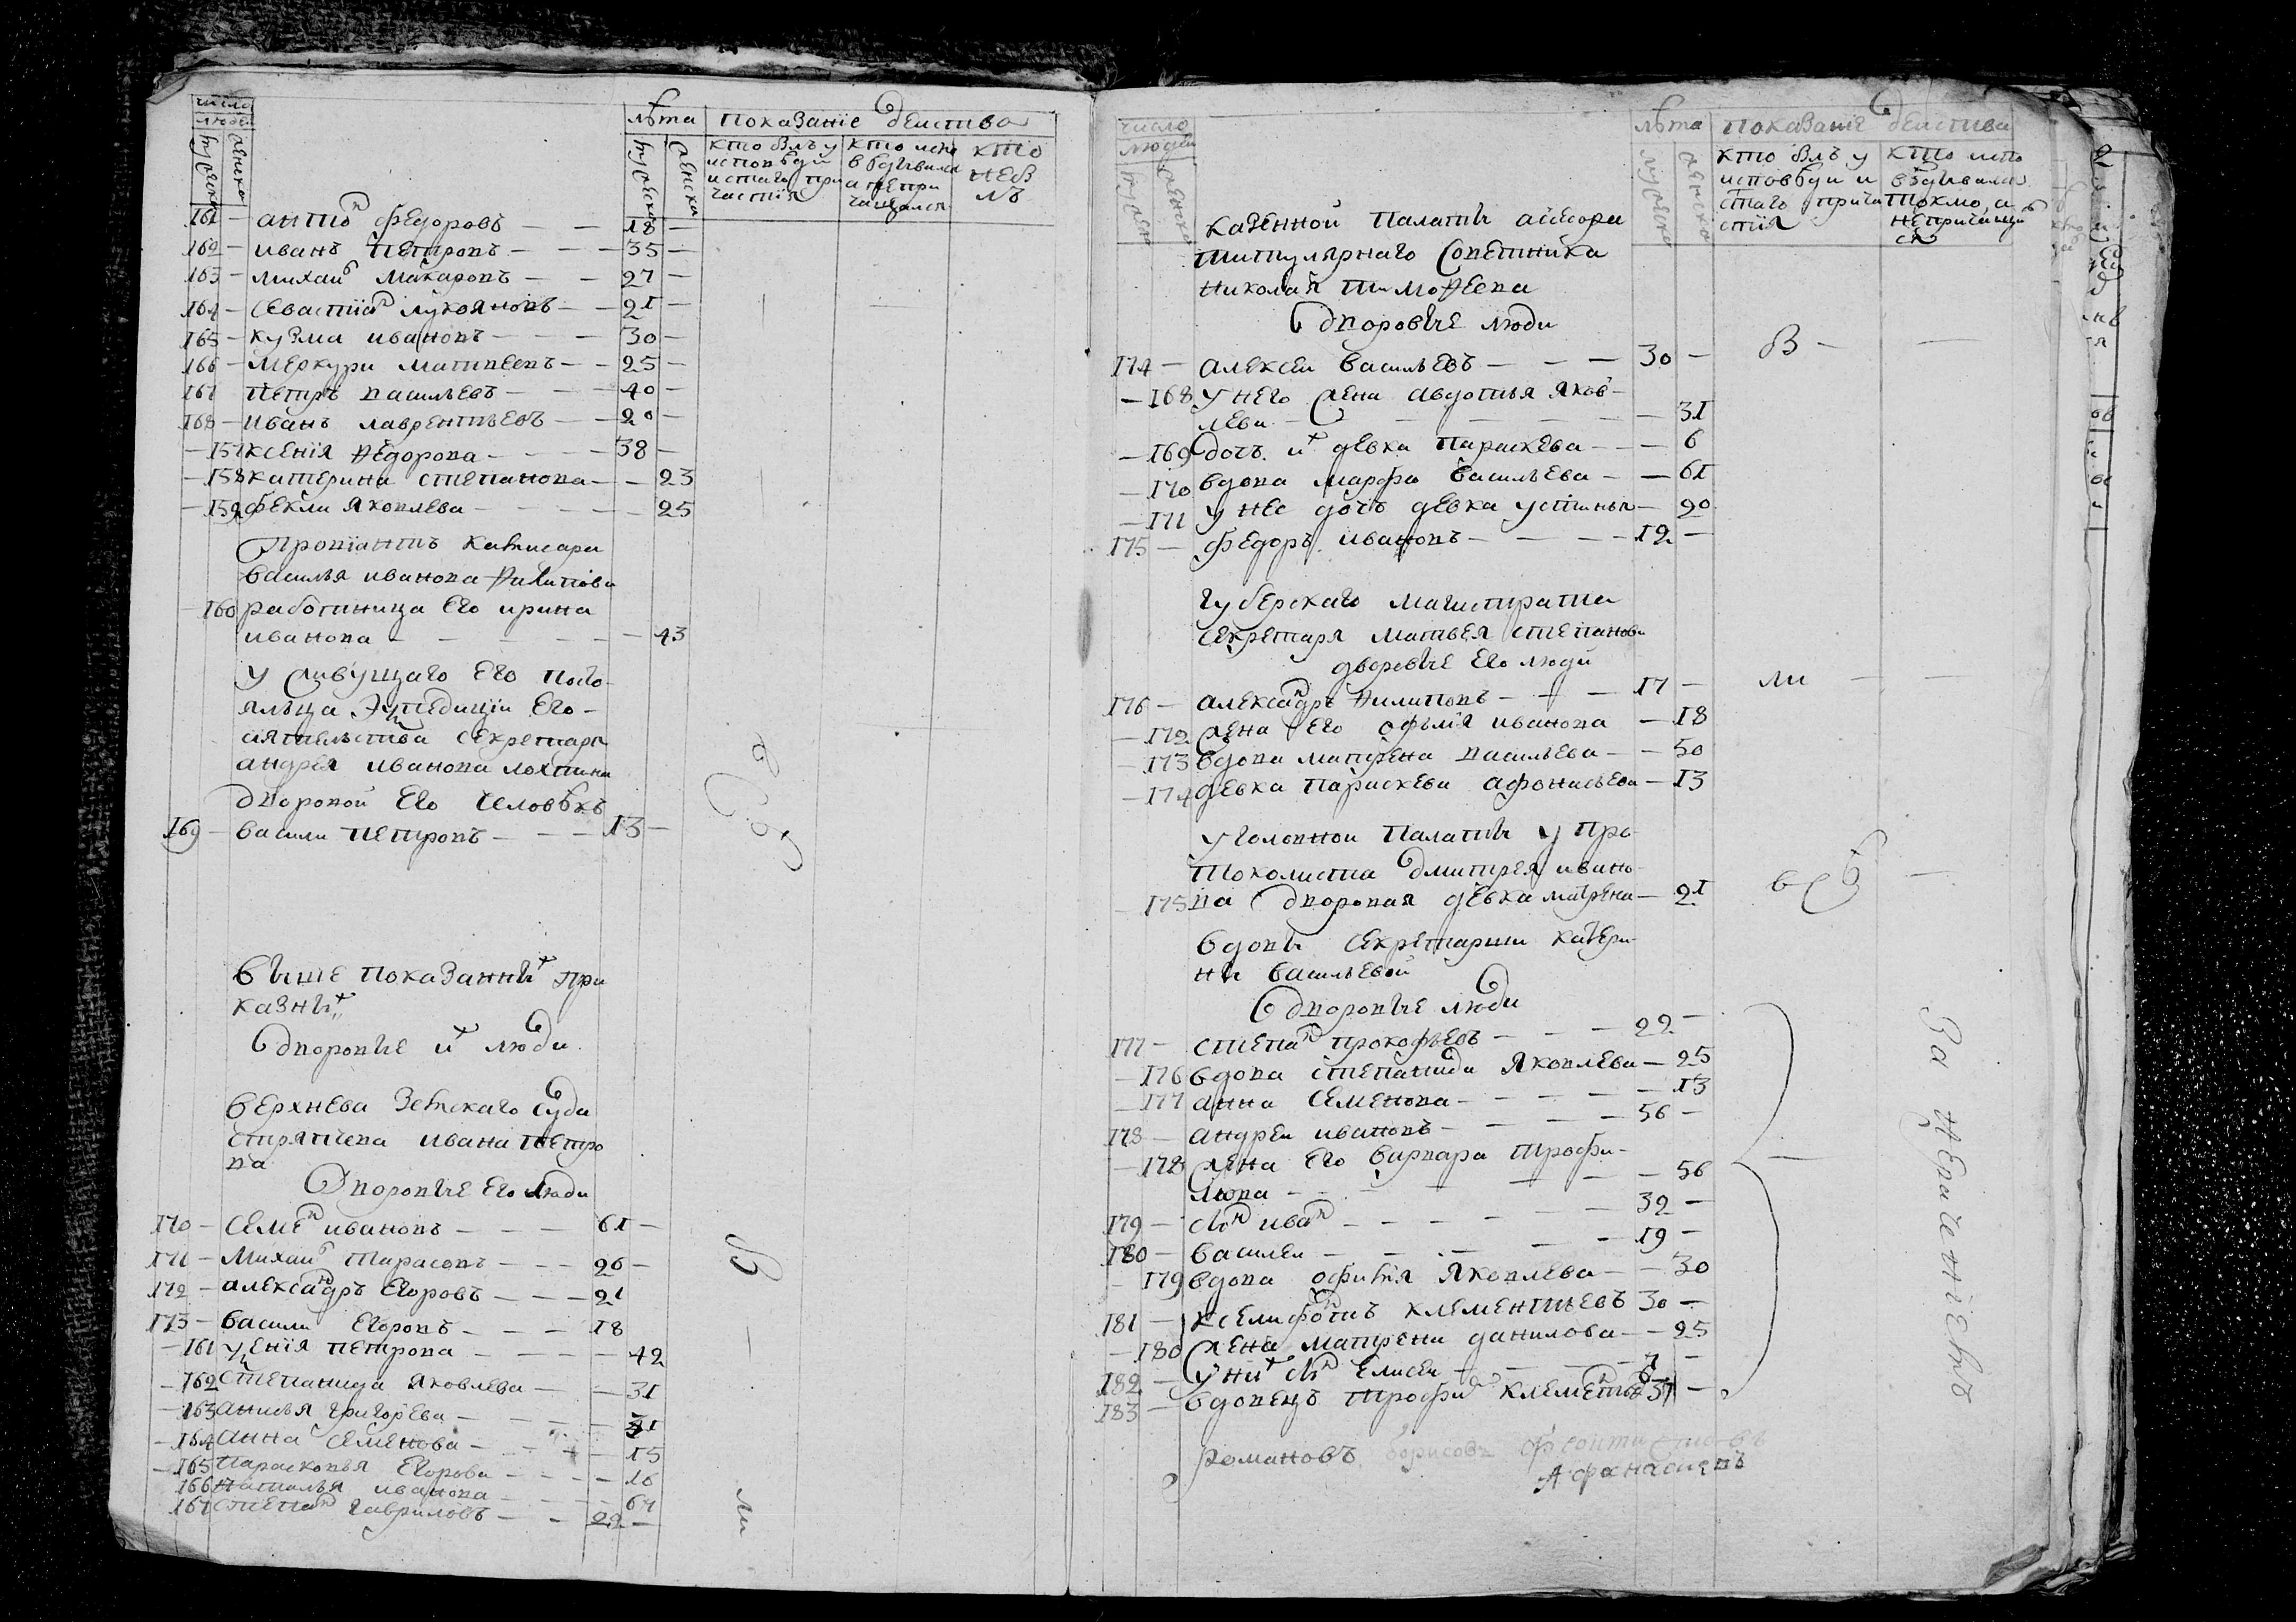 число людей
мужеска
женска
лѣта
мужеска
женска
показанїе действа
кто былъ у исповѣди и стаго причастїя
кто исповѣдывался а не причащался
кто не былъ
161 — антонъ федоровъ — — 18 —
162 — иванъ петровъ — — 35 —
163 — михаилъ макаровъ — — 27 —
164 — севастїанъ лукояновъ — — 21 —
165 — кузма ивановъ — — 30 —
166 — меркури матвеевъ — — 25 —
167 петръ васильевъ — — 40 —
168 — иванъ лаврентьевъ — — 20 —
— 157 ксенїя федорова — — 38 —
— 158 катерина степанова — — 23
— 159 фекли яковлева — — 25
провїантъ камисара
василья иванова филипова
— 160 работница его ирина
иванова — — 43
у живущаго его посто-
яльца экспедицїи его-
сїятельства секретаря
андрея иванова лохтина
дворовой его человѣкъ
169 — васили петровъ — — 13 —
всѣ
выше показанныхъ при
казныхъ
дворовые ихъ люди
верхнева земскаго суда
стряпчева ивана петро
ва
дворовые его люди
170 — семенъ ивановъ — — 61 —
171 — михаилъ тарасовъ — — 26 —
172 — александръ егоровъ — — 21
173 — васили егоровъ — — 18
— 161 уксенїя петрова — — 42
— 162 степанида яковлева — — 31
— 163 анисья григорева — — 31
— 164 анна семенова — — 15
— 165 парасковья егорова — — 16
166 наталья иванова — — 67
167 степанъ гавриловъ — — 22 —
б
—
ли
число людей
мужеск
женска
лѣта
мужеска
женска
показанїе действа
кто былъ у исповѣди и стаго причастїя
кто исповѣдывался токмо, а не причащался
казенной палаты асесора
титулярнаго советника
николая тимофеева
дворовые люди
174 — алексеи васильевъ — — — 30 — в —
— 168 у него жена авдотья яков-
лева — — 31
— 169 дочь ихъ девка параскева — — 6
— 170 вдова марфа васильева — — 61
— 171 у нее дочь девка устинья — 20
175 — федоръ ивановъ — — — 12 —
губерскаго магистрата
секретаря матвея степанова
дворовые его люди
176 — александръ филиповъ — — — 17 — ли —
— 172 жена его офимїя иванова — 18
— 173 вдова матрена васильева — — 50
— 174 девка параскева афонасьева — 13
уголовной палаты у про-
токолиста дмитрея ивано-
— 175 ва дворовая девка матрена — 21 всѣ
вдовы секретарши катери-
ны васильевой
дворовые люди
177 — степанъ прокофьевъ — — — 22 —
— 176 вдова степанида яковлева — 25
— 177 анна семенова — — — 13
178 — андреи ивановъ — — — 56 —
— 178 жена его варвара трофи-
мова — — 56
179 — сынъ иванъ — — — 32 —
180 — васили — — — 19 —
— 179 вдова офимїя яковлева — — 30
181 — ксенифонтъ клементьевъ 30 —
— 180 жена матрена данилова — — 25
182 — у нихъ сынъ елисеи — — — 7 —
183 — вдовецъ трофимъ клементьевъ 37 —
За нерачениемъ
романовъ борисовъ
Афонасиевъ